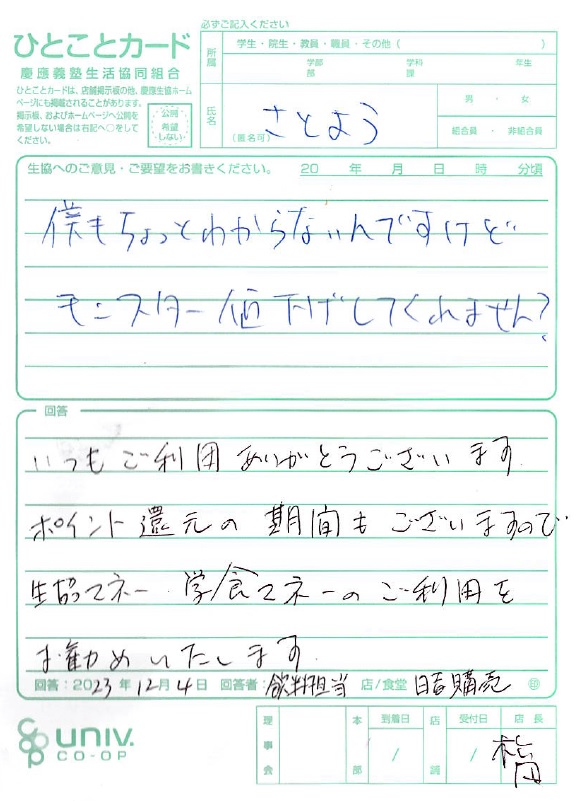 必ずご記入ください
ひとことカード
慶應義塾生活協同組合
ひとことカードは、店舗掲示板の他、慶應生協ホームページにも掲載されることがあります。
掲示板、およびホームページへ公開を希望しない場合は右記へ○をしてください。
公開希望しない
所属
学生・院生・教員・職員・その他 ( )
学部 学科 年生
部 課
氏名
(匿名可)
さとよう
男 ・ 女
組合員 ・ 非組合員
生協へのご意見・ご要望をお書きください。
20 年 月 日 時 分頃
僕もちょっとわからないんですけど
モンスター値下げしてくれません?
回答
いつもご利用ありがとうございます
ポイント還元の期間もございますので
生協マネー・学食マネーのご利用を
お勧めいたします
回答:2023年12月4日 回答者:飲料担当 店/食堂 日吉購売 印
univ.
CO-OP
理事会
本部
到着日
/
店舗
受付日
/
店長